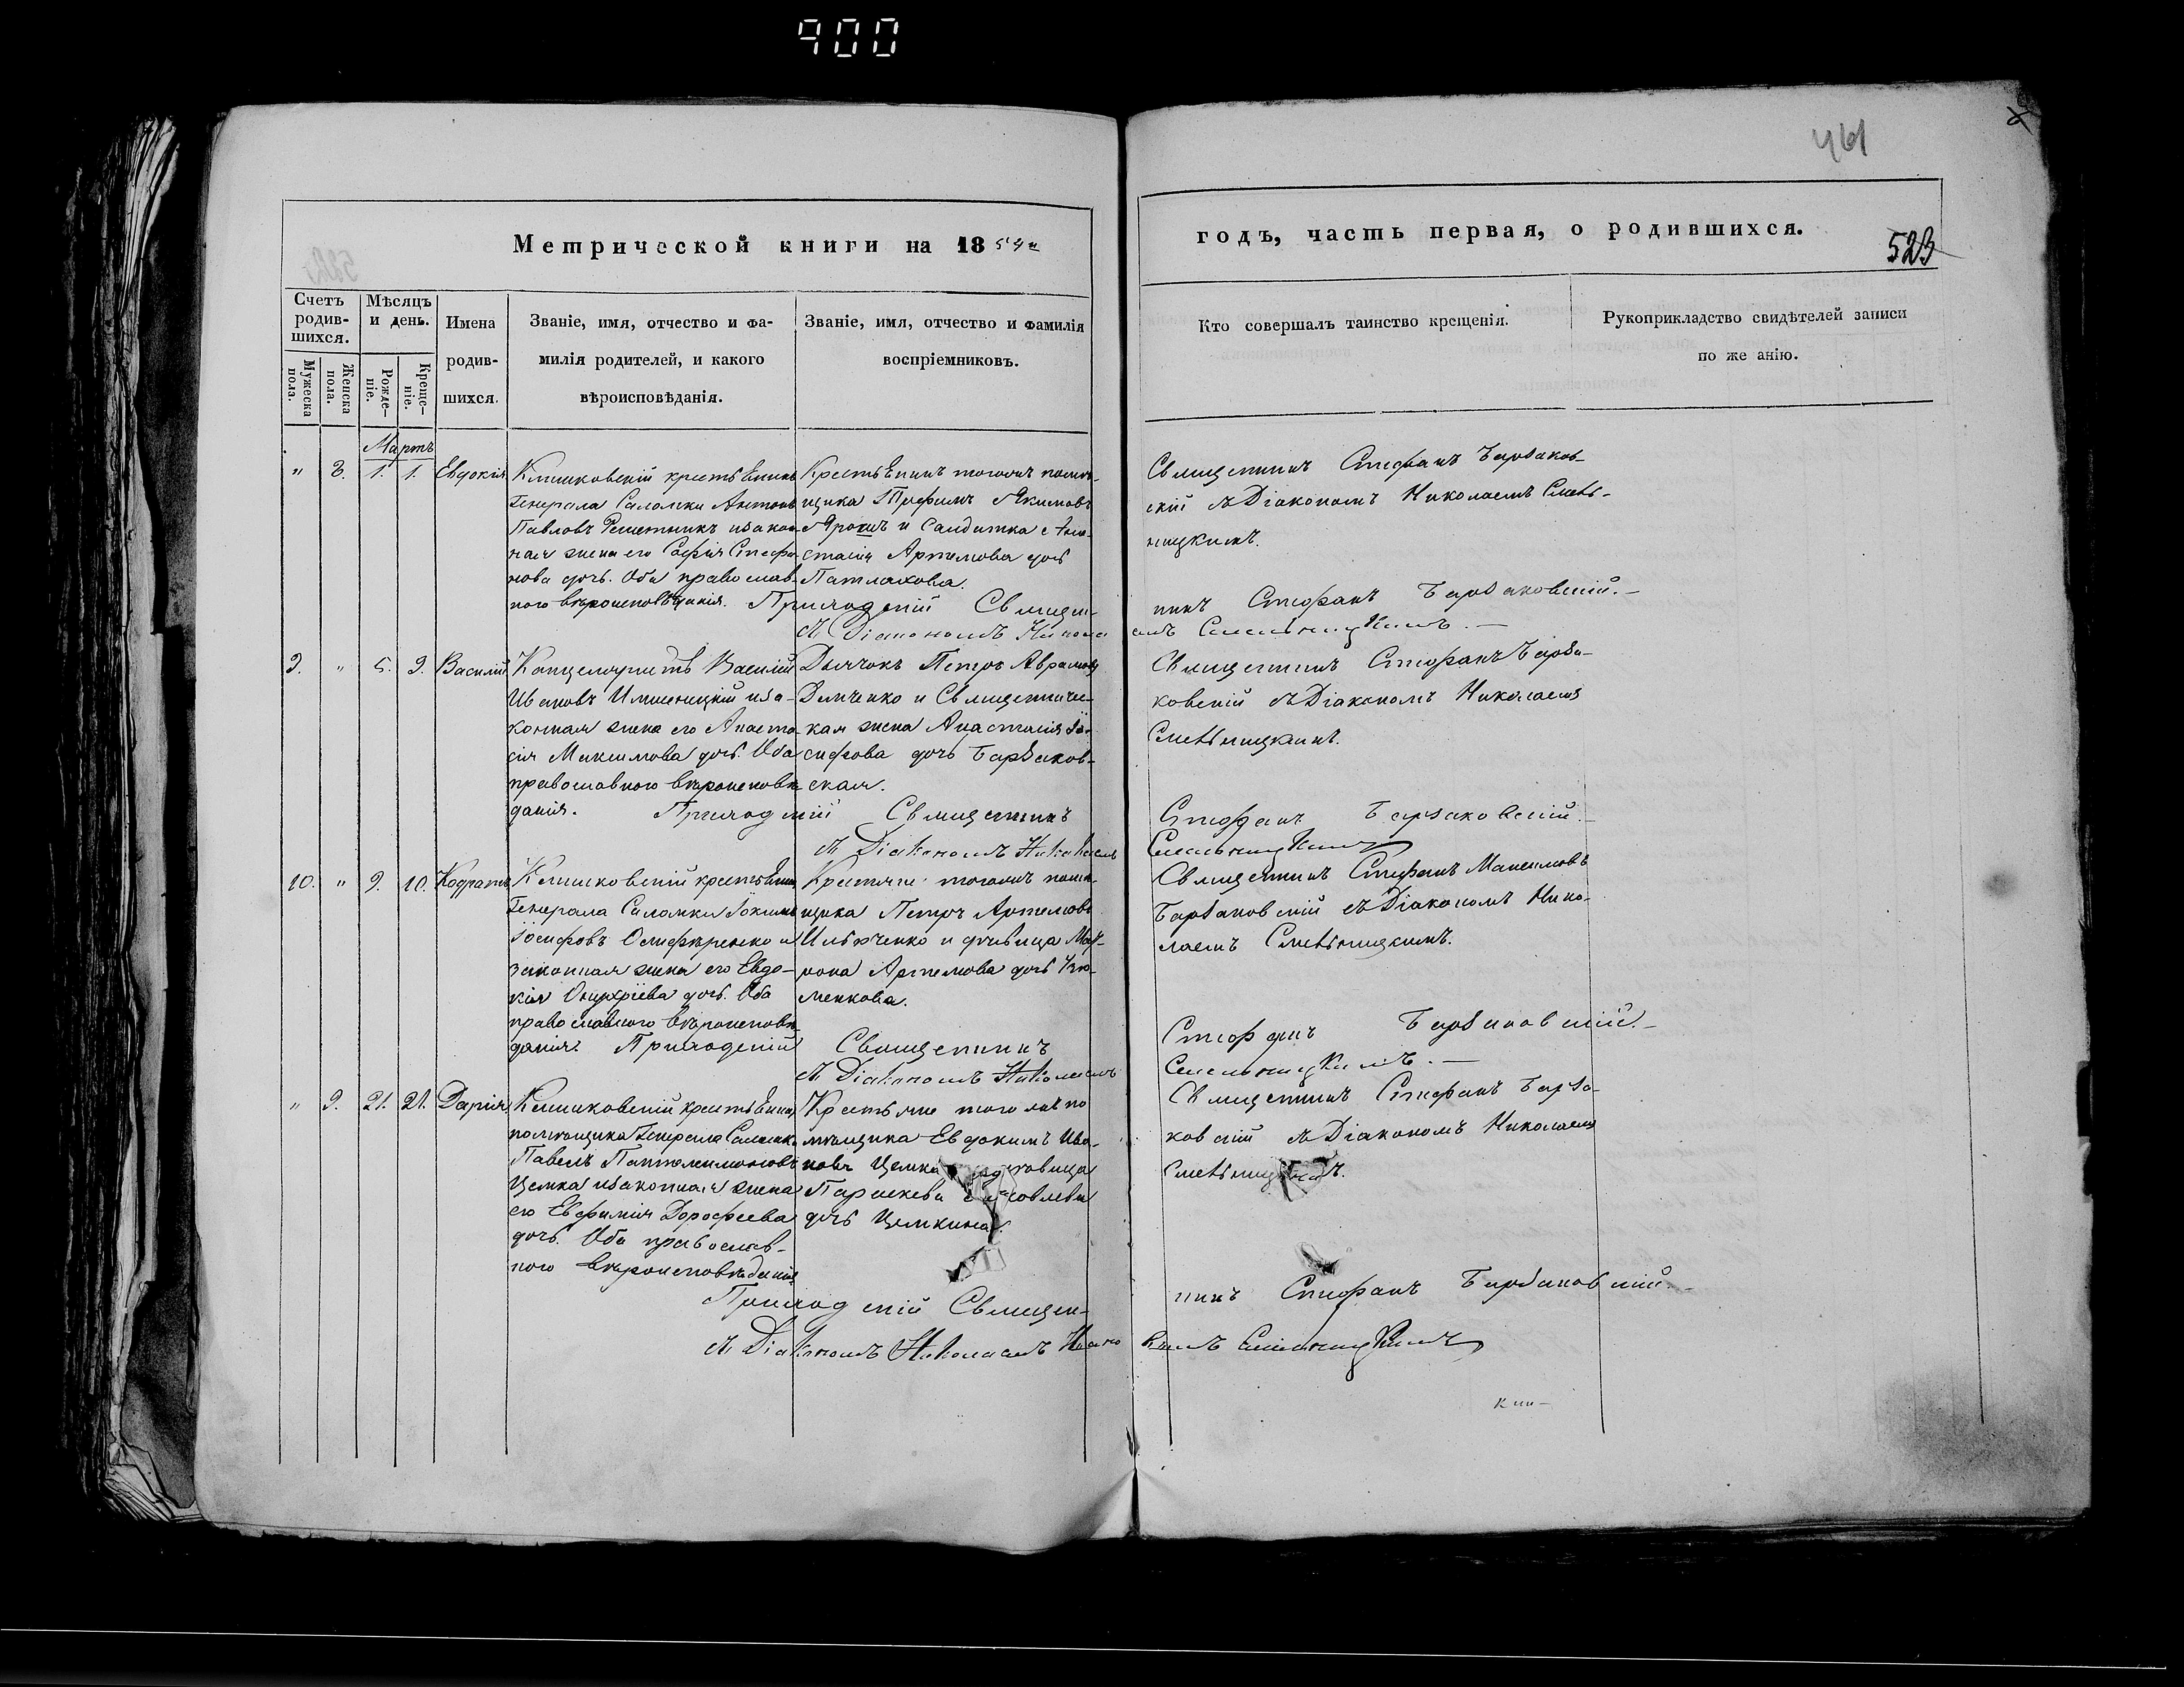 900
461
Метрической книги на 1854й
годъ, часть первая, о родившихся.
523
Счетъ родив-
шихся.
Мужеска пола.
Женска пола.
Мѣсяцъ и день.
Рожде-
ніе.
Креще-
ніе.
Имена
родив-
шихся.
Званіе, имя, отчество и фа-
милія родителей, и какого
вѣроисповѣданія.
Званіе, имя, отчество и фамилія
воспріемниковъ.
Кто совершалъ таинство крещенія.
Рукоприкладство свидѣтелей записи
по же анію.
Мартъ
" 8. 1. 1. Евдокія
Климковскій крестьянинъ
Генерала Саломки Антонъ
Павловъ Решетникъ и закон-
ная жена его Софія Стефа-
нова дочь. Оба православ-
ного вѣроисповѣданія.
Крестьянинъ тогожъ помѣ-
щика Трофимъ Якимовъ
и Салдатка Ана-
стасія Артемова дочь
Патлахова.
Священникъ Стефанъ Барзаков-
скій съ Діакономъ Николаемъ Смель-
ницкимъ.
Приходскій Священ-
никъ Стефанъ Барзаковскій.
съ Діакономъ Никола
емъ Смельницкимъ.
9. " 5. 9. Василій
Канцеляристъ Василій
Ивановъ и за-
конная жена его Анаста-
сія Максимова дочь. Оба
православного вѣроисповѣ-
данія.
Дьячокъ Петръ Аврамовъ
Демченко и Священниче-
ская жена Анастасія Іо-
сифова дочь Барзаков-
ская.
Священникъ Стефанъ Барза-
ковскій съ Діакономъ Николаемъ
Смельницкимъ.
Приходскій Священникъ
Стефанъ Барзаковскій.
съ Діакономъ Николаемъ
Смельницкимъ
10. " 9. 10. Кодратъ
Климковскій крестьянинъ
Генерала Саломки Іоакимъ
Іосифовъ и
законная жена его Евдо-
кія Онуфріева дочь. Оба
православного вѣроисповѣ-
данія.
Крестьяне тогожъ помѣ-
щика Петръ Артемовъ
Ильченко и дѣвица Мат-
рона Артемова дочь
менкова.
Священникъ Стефанъ Максимовъ
Барзаковскій съ Діакономъ Нико-
лаемъ Смельницкимъ.
Приходскій Священникъ
Стефанъ Барзаковскій.
съ Діакономъ Николаемъ
Смельницкимъ.
" 9. 21. 21. Дарія
Климковскій крестьянинъ
помѣщика Генерала Саломки
Павелъ Пантелеимоновъ
Цемка и законная жена
его Евфимія Дорофеева
дочь. Оба православ-
ного вѣроисповѣданія
Крестьяне того же по
мѣщика Евдокимъ Ива-
новъ Цемка
Параскева Яковлева
дочь Цемкина.
Священникъ Стефанъ Барза-
ковскій съ Діакономъ Николаемъ
Смельницкимъ.
Приходскій Священ-
никъ Стефанъ Барзаковскій.
съ Діакономъ Николаемъ Ивано
Смельницкимъ